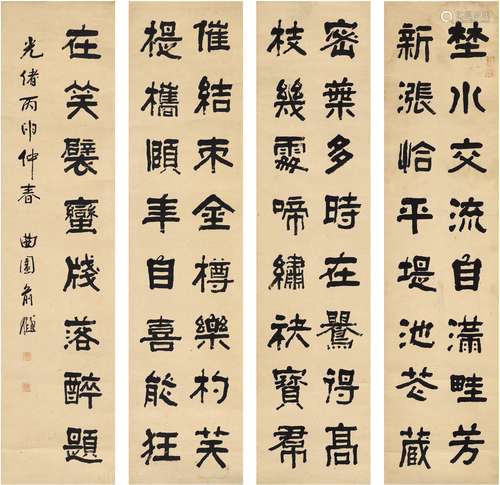 埜水交流自滿畦芳
新漲恰平堤池花藏
密葉多時在鶯得高
枝幾處啼繡袂寶羣
催結束金樽樂杓芙
提攜頤年自喜能狂
在笑襞蠻牋落醉題
光緒丙申仲春 曲園俞樾